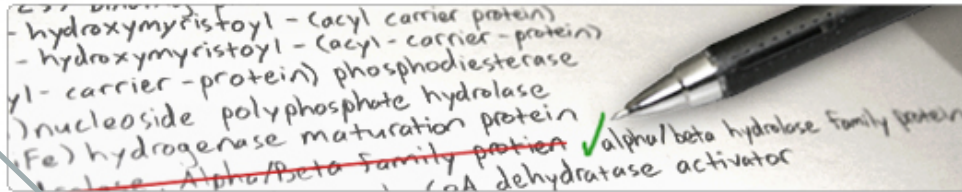 - hydroxymyristoyl - (acyl carrier protein)
- hydroxymyristoyl - (acyl - carrier - protein)
yl - carrier - protein) phosphodiesterase
) nucleoside polyphosphate hydrolase
Fe) hydrogenase maturation protein
Alpha/Beta family protien alpha/beta hydrolase family protein
CoA dehydratase activator